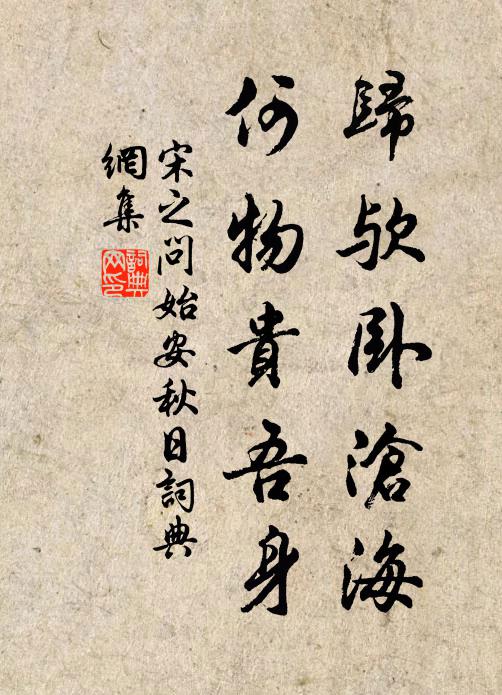 歸欤卧滄海
何物貴吾身
宋之问始安秋日詞典
網集
詞典
网印